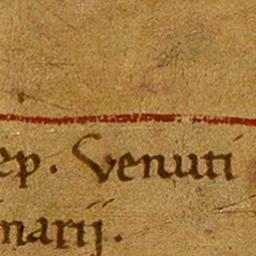 ep. Venuti
narij.